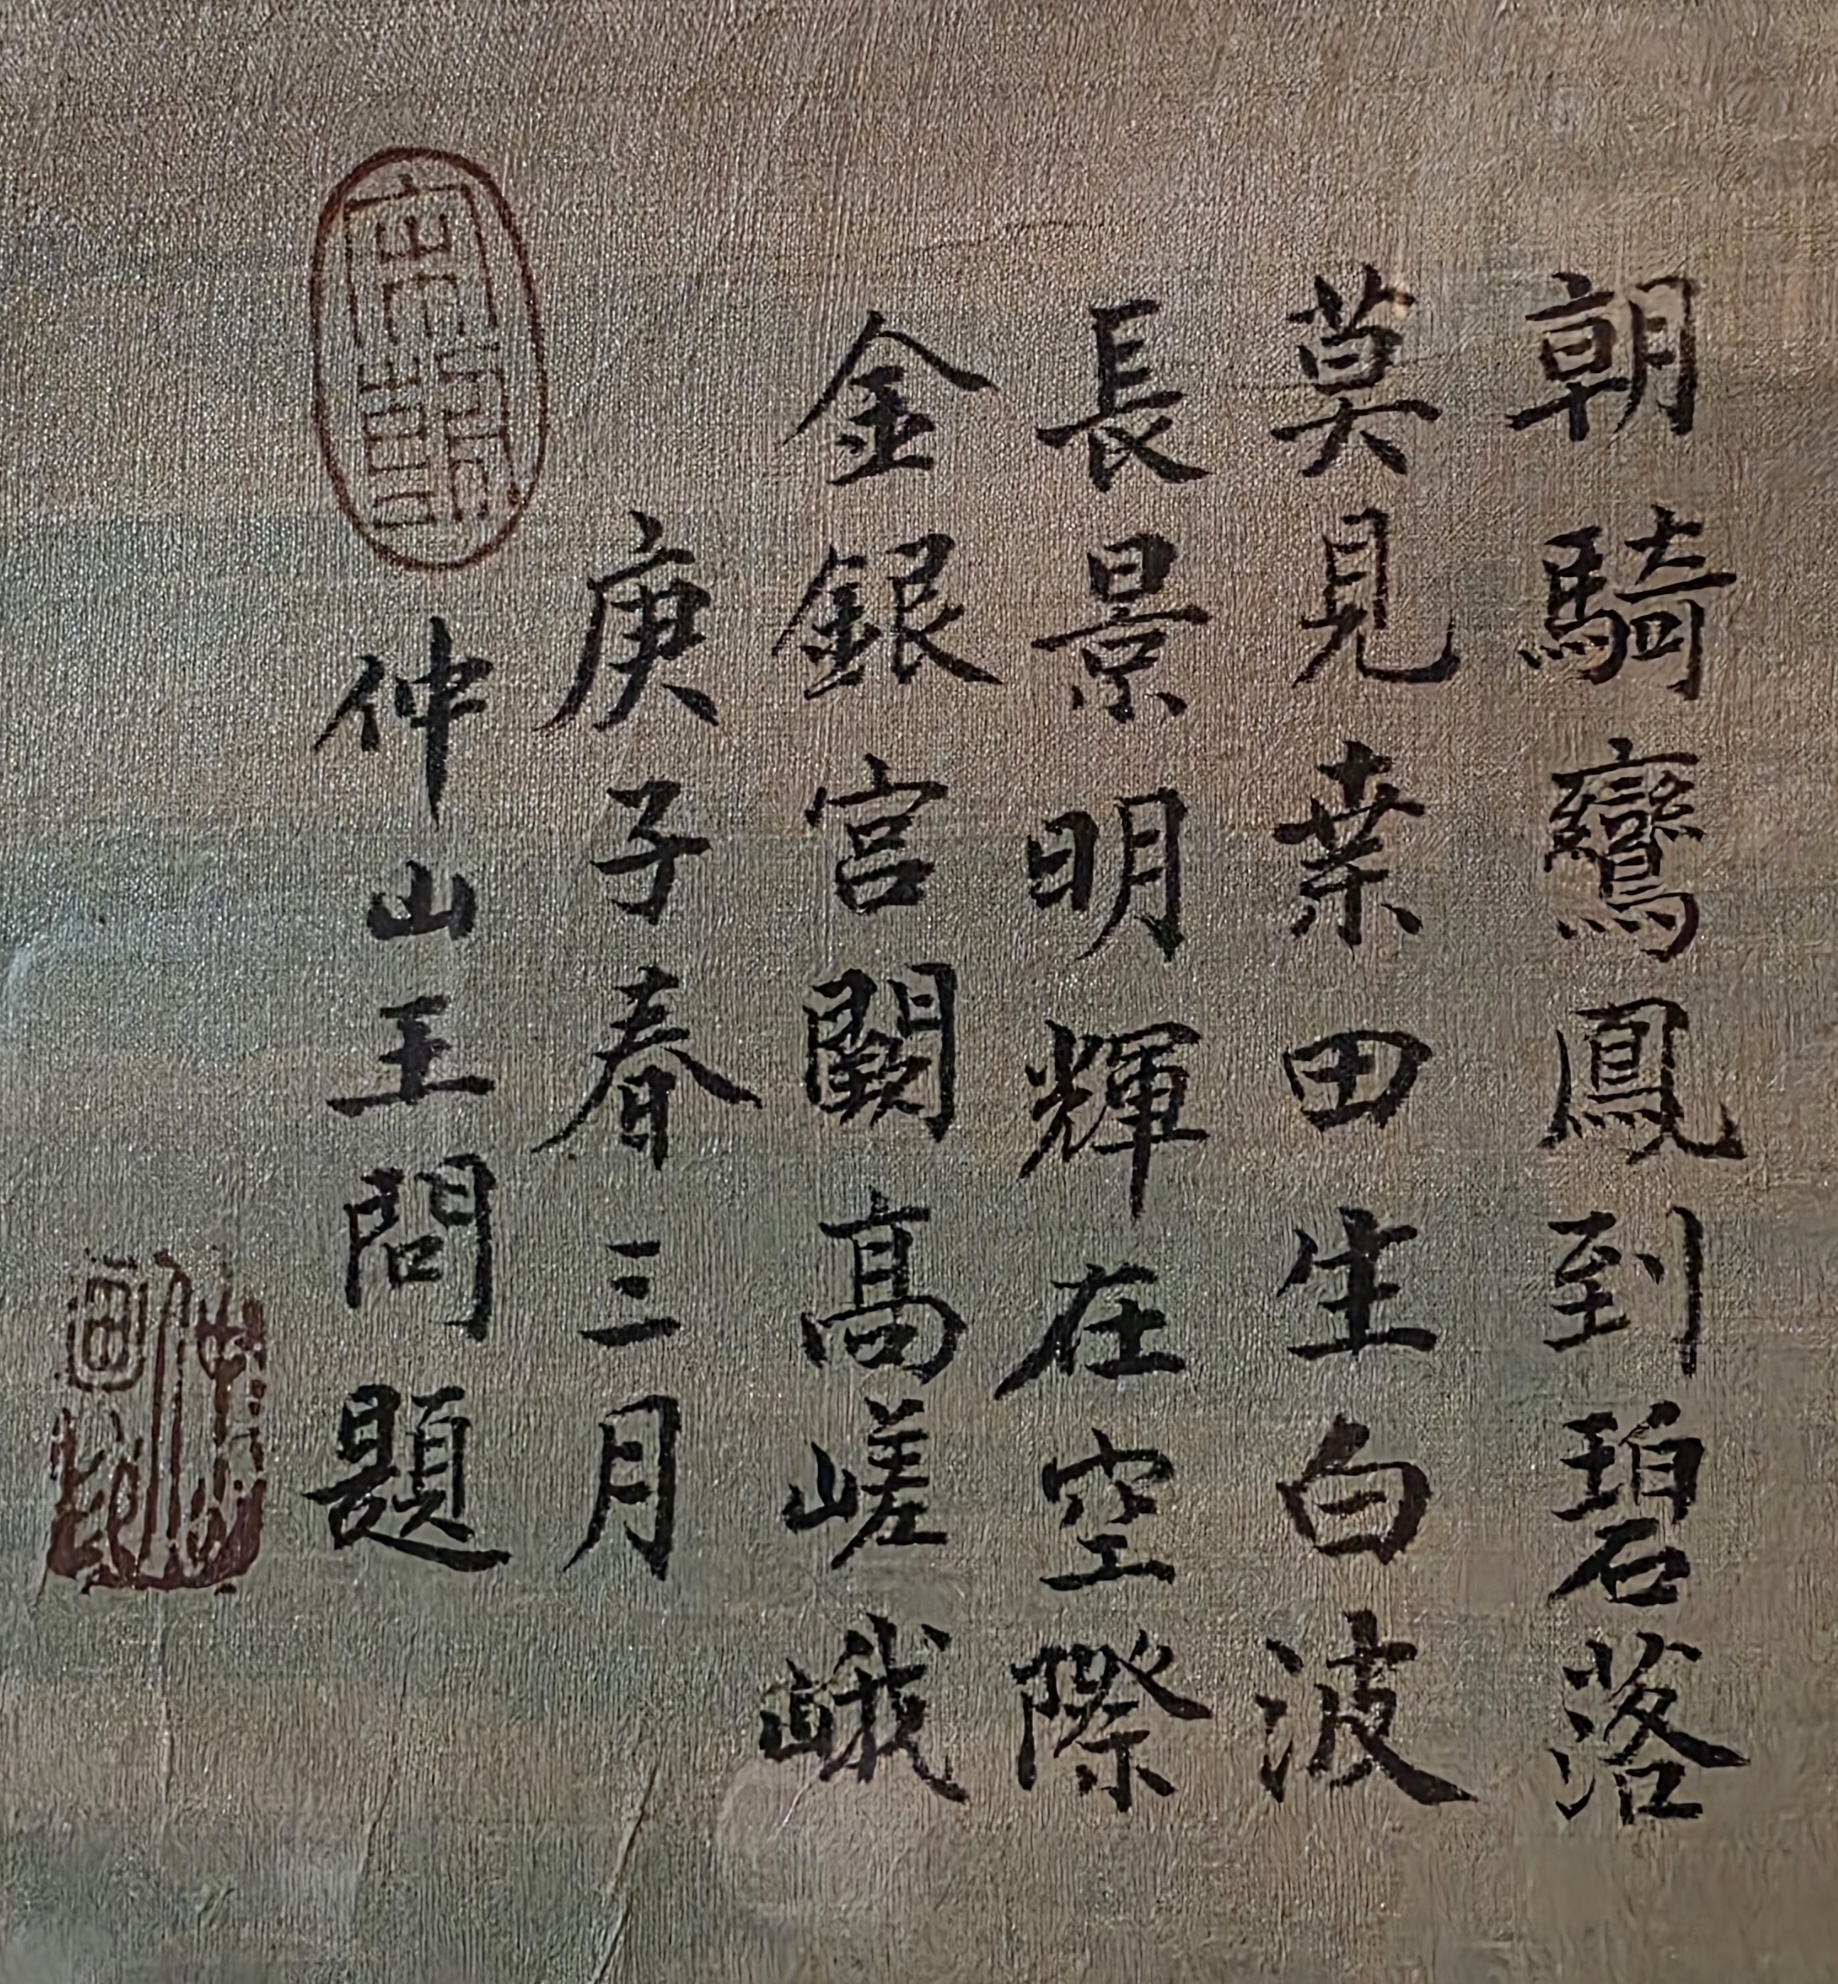 朝騎鸞鳳到碧落
莫見桒田生白波
長景明輝在空際
金銀宮闕高嵯峨
庚子春三月
仲山王問題